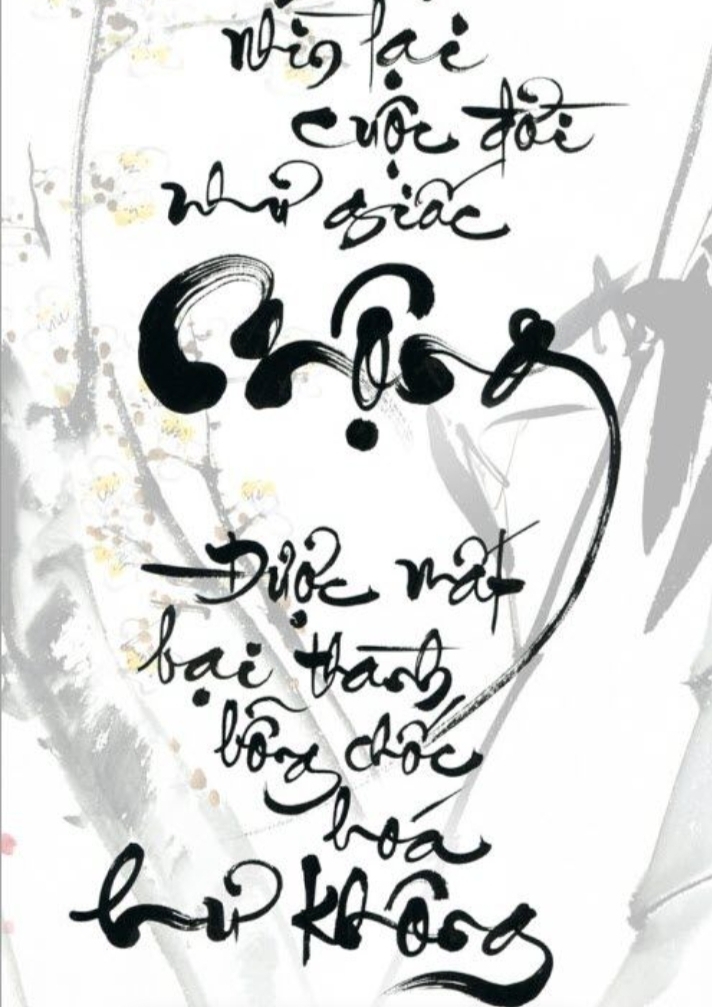 Nhìn lại
cuộc đời
như giấc
Mộng
Được mất
bại thành
bỗng chốc
hoá
hư không